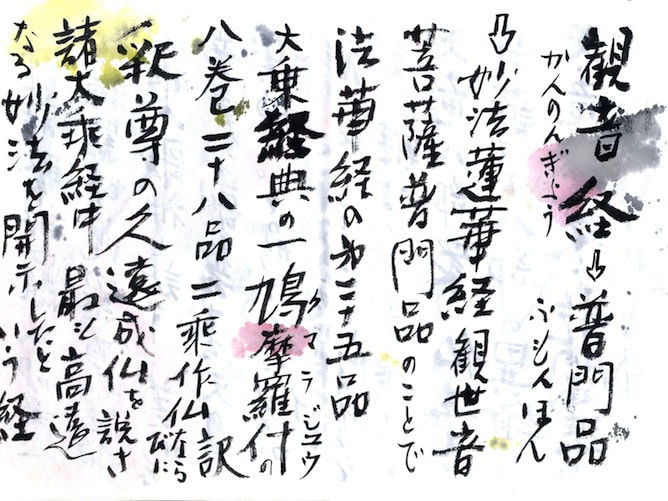 観音経⇩普門品
かんのんぎょう
ふもんほん
⇩妙法蓮華経観世音
菩薩普門品のことで
法華経の第二十五品
大乗経典の一鳩摩羅什の
クマラジュウ
八巻二十八品二乗作仏 訳
ならびに
釈尊の久遠成仏を説き
諸大乗経中最も高遠
なる妙法を開示したという経